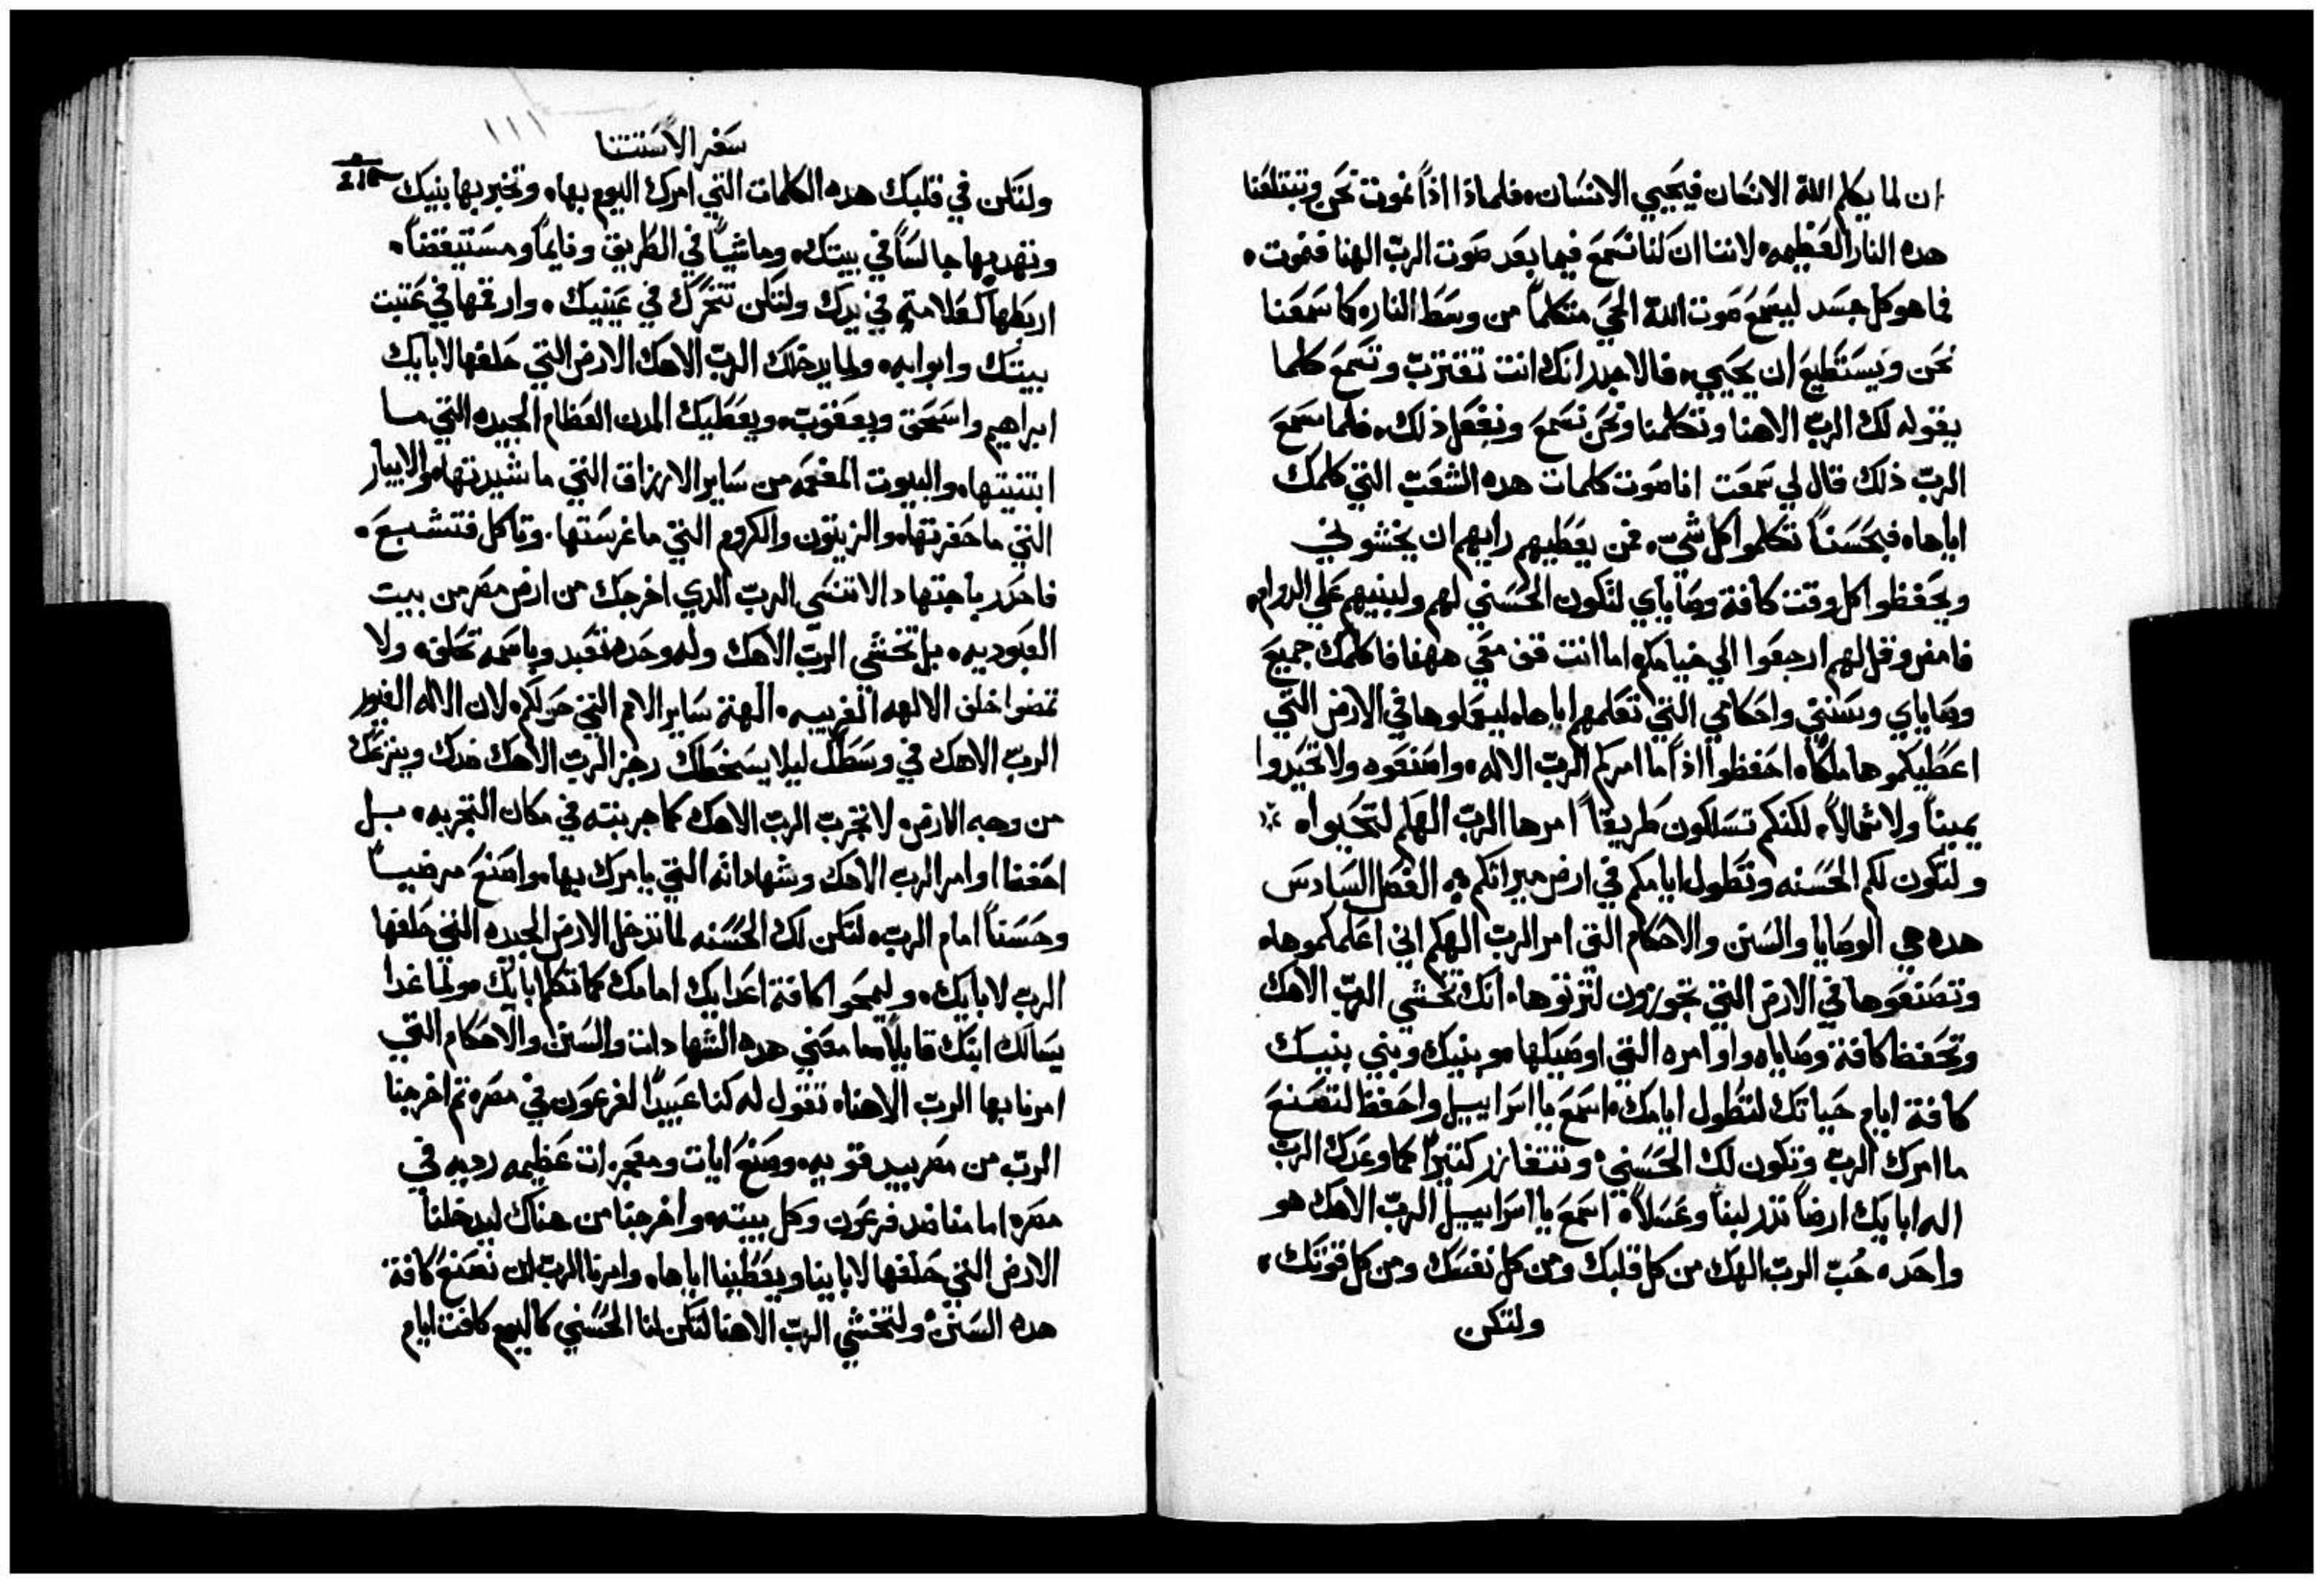 ان لما يكلم الله الانسان فيحيي الانسان. فلماذا اذاً نموت نحن وتبتلعنا
هده النار العظيمه. لاننا ان لنا نسمع فيما بعد صوت الرب الهنا فنموت.
فما هو كل جسد ليسمع صوت الله الحي متكلماً من وسط النار. كما سمعنا
نحن ويستطيع ان يحيي. فالاجدر انك انت تقترب وتسمع كلما
يقوله لك الرب الاهنا وتكلمنا ونحن نسمع ونفعل ذلك. فلما سمع
الرب ذلك قال لي سمعت انا صوت كلمات هده الشعب التي كلمك
اياها. فبحسناً تكلموا كل شي. فمن يعطيهم رايهم ان يخشوني
ويحفظوا كل وقت كافة وصاياي لتكون الحسني لهم ولبنيهم علي الدوام.
فامض وقل لهم ارجعوا الي خيامكم. اما انت قف معي ههنا فاكلمك جميع
وصاياي وسنني واحكامي التي تعلمهم اياها. ليعملوها في الارض التي
اعطيكموها ملكاً. احفظوا اذاً ما امركم الرب الاله. واصنعوه ولا تحيدوا
يميناً ولا شمالاً. لكنكم تسلكون طريقاً امرها الرب الهكم لتحيوا.
ولتكون لكم الحسنه وتطول ايامكم في ارض ميراثكم. الفصل السادس
هده هي الوصايا والسنن والاحكام التي امر الرب الهكم اني اعلمكموها.
وتصنعوها في الارض التي تجوزون لترثوها. انك تخشي الرب الاهك
وتحفظ كافة وصاياه واوامره التي اوصيك بها. وبنيك وبني بنيك
كافة ايام حياتك لتطول ايامك. اسمع يا اسراييل واحفظ لتصنع
ما امرك الرب وتكون لك الحسني. وتتغازر كتيراً كما وعدك الرب
اله ابايك ارضاً تدر لبناً وعسلاً. اسمع يا اسراييل الرب الاهك هو
واحد. حُب الرب الهك من كل قلبك ومن كل نفسك ومن كل قوتك.
ولتكن
سفر الاستتنا
ولتكن في قلبك هده الكلمات التي امرك اليوم بها. وتخبر بها بنيك
وتهد بها جالساً في بيتك. وماشياً في الطريق ونايماً ومستيقضاً.
اربطها كعلامة في يدك ولتكن تتحرك في عينيك. وارقمها في عتبت
بيتك وابوابه. ولما يدخلك الرب الاهك الارض التي حلفها لابايك
ابراهيم واسحق ويعقوب. ويعطيك المدن العظام الجيده التي ما
ابتنيتها. والبيوت المفعمه من ساير الارزاق التي ما شيدتها. والابيار
التي ما حفرتها. والزيتون والكروم التي ما غرستها. وتاكل فتشبع.
فاحدر باجتهاد الا تنسي الرب الدي اخرجك من ارض مصر من بيت
العبوديه. بل تخشي الرب الاهك وله وحده تعبد وباسمه تحلف. ولا
تمضوا خلف الالهه الغريبه. الهة ساير الامم التي حولكم. لان الاله الغيور
الرب الاهك في وسطك ليلا يسخطك رجز الرب الاهك ضدك وينزعك
من وجه الارض. لا تجرب الرب الاهك كما جربته في مكان التجربه. بل
احفظ اوامر الرب الاهك وشهاداته التي يامرك بها. واصنع مرضياً
وحسناً امام الرب. لتكن لك الحسنه لما تدخل الارض الجيده التي حلفها
الرب لابايك. وليمحوا كافة اعدايك امامك كما تكلم ابايك. ولما غدا
يسالك ابنك قايلاً ما معني هده الشهادات والسنن والاحكام التي
امرنا بها الرب الاهنا. تقول له كنا عبيداً لفرعون في مصر. تم اخرجنا
الرب من مصر بيد قويه. وصنع ايات ومعجزات عظيمه رديه في
مصر. امامنا ضد فرعون وكل بيته. واخرجنا من هناك ليدخلنا
الارض التي حلفها لابابنا ويعطينا اياها. وامرنا الرب ان نصنع كافة
هده السنن. ولنخشي الرب الاهنا لتكن لنا الحسني كاليوم كافت ايام